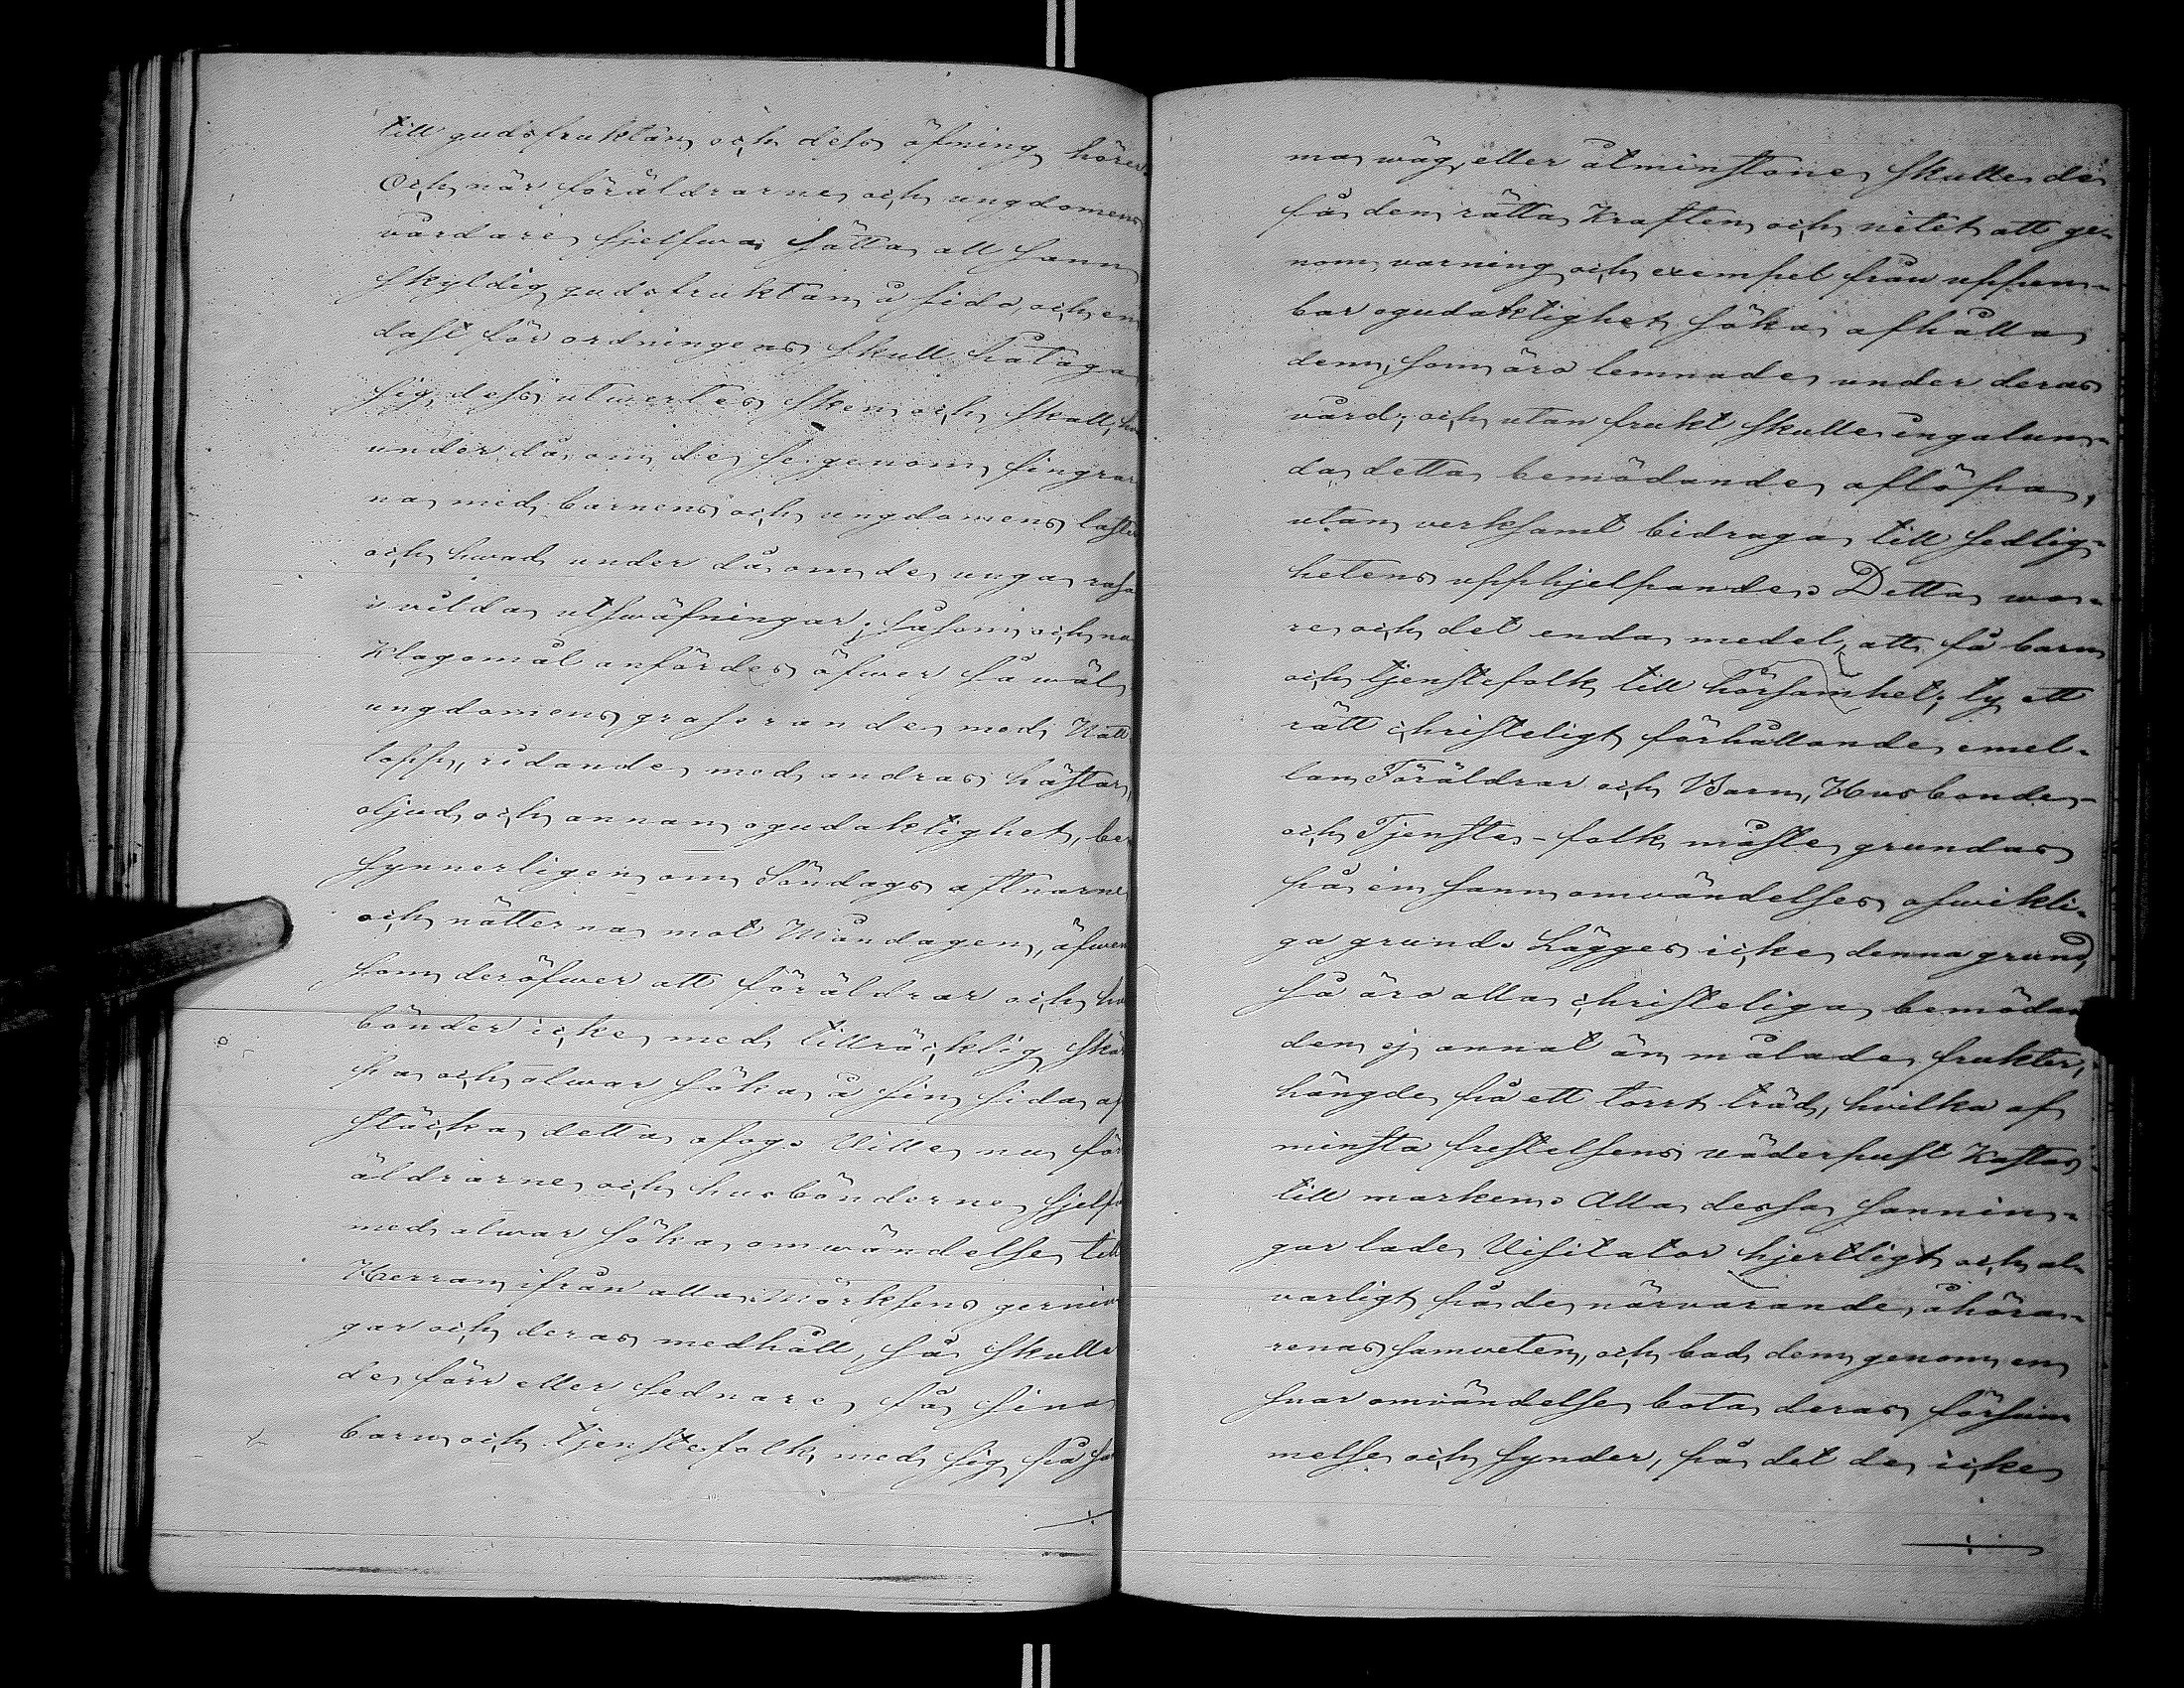 till gudsfruktan och dess öfning hörer.
Och när föräldrarne och ungdomens
vårdare sjelfwa sätta all sann
skyldig gudsfruktan å sido, och en
dast för ordningens skull påtaga
sig dess utwertes sken och skall, hwa
under då, om de se genom fingrar
na med barnens och ungdomens laster
och hwad under då om de unga rasa
i vilda utswäfningar; såsom och nu
Klagomål anfördes öfwer så wäl
ungdomens grasserande med Natt
lopp, ridande med andras hästar,
oljud och annan ogudaktighet, be
synnerligen om Söndags aftnarne
och nätterna mot Måndagen, äfwen
som deröfwer att föräldrar och hus
bönder icke med tillräcklig skär
pa och alwar söka å sin sida af
stäcka detta ofog. Wille nu för
äldrarne och husbönderne sjelfwa
med alwar söka omwändelse till
Herran ifrån alla Mörksens gernin
gar och deras medhåll, så skulle
de förr eller sednare få sina
barn och tjenstefolk med sig på sam
ma wäg, eller åtminstone skulle de
få den rätta Kraften och nitet att ge-
nom varning och exempel från uppen-
bar ogudaktighet söka afhålla
dem, som äro lemnade under deras
vård; och utan frukt skulle ingalun-
da detta bemödande aflöpa,
utan verksamt bidraga till sedlig-
hetens upphjelpande. Detta wo-
re och det enda medel, att få barn
och tjenstefolk till hörsamhet; ty ett
rätt christeligt förhållande emel-
lan Föräldrar och Barn, Husbonde-
och Tjenste-folk måste grundas
på en sann omvändelses ofwikli-
ga grund. Lägges icke denna grund,
så äro alla christeliga bemödan
den ej annat än målade frukter,
hängde på ett torrt träd, hvilka af
minsta frestelsens väderpust Kastas
till marken. Alla dessa sannin-
gar lade Visitator hjertligt och al-
varligt på de närvarande åhöra-
renas samveten, och bad dem genom en
snar omvändelse bota deras försum
melse och synder, på det de icke